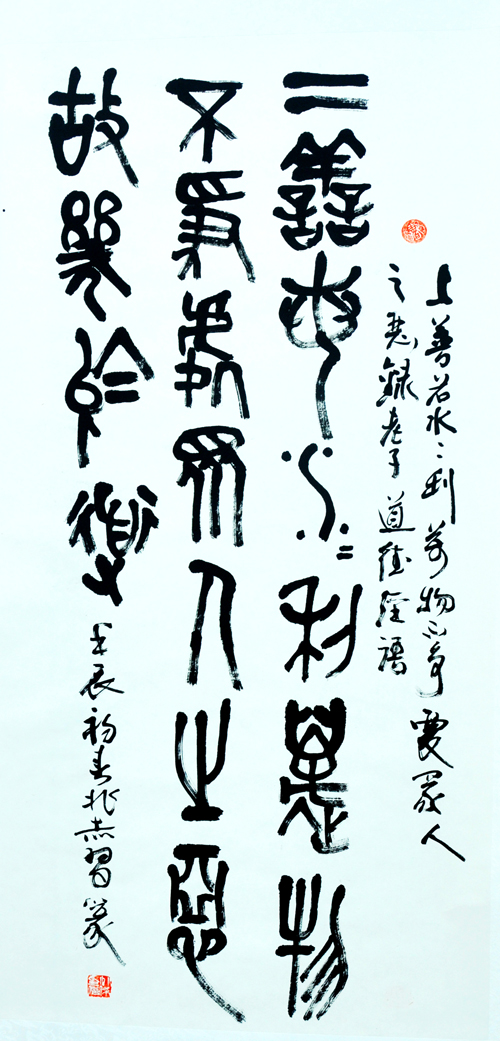 上善若水〻利萬物不爭處眾人
之惡錄老子道德經語
上善若水〻利萬物
不爭處眾人之惡
故幾於道
壬辰初春 習篆